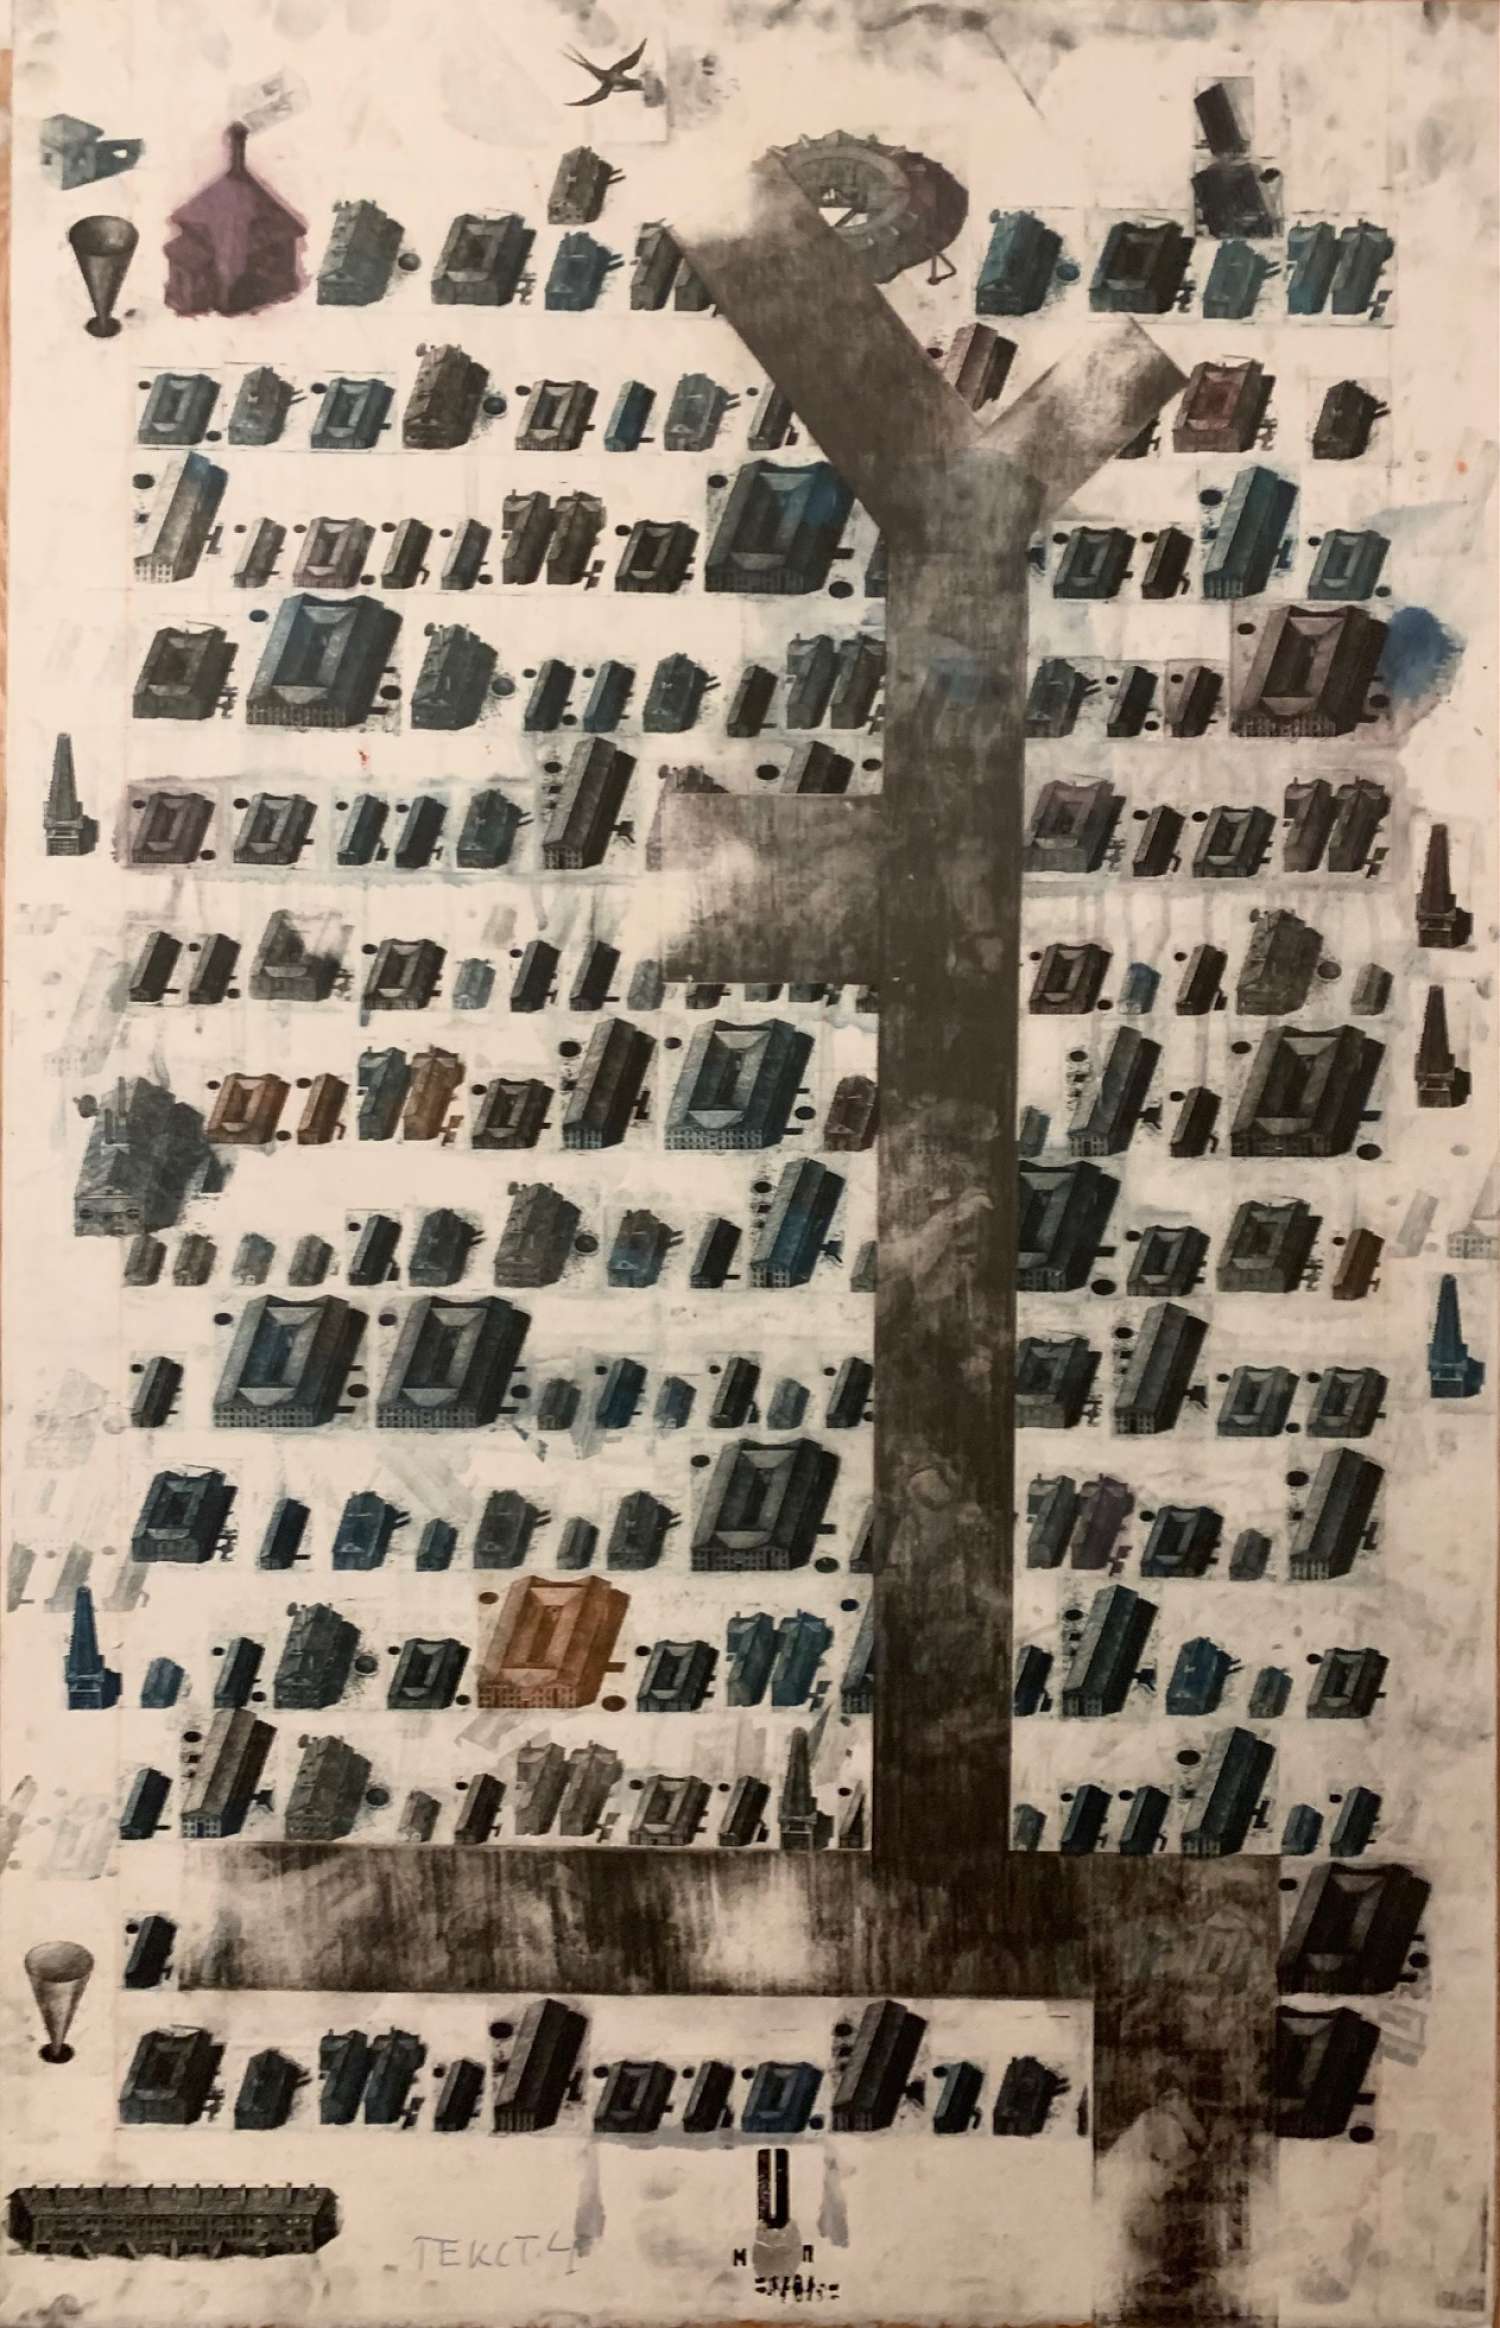 ТЕКСТ.4
М П